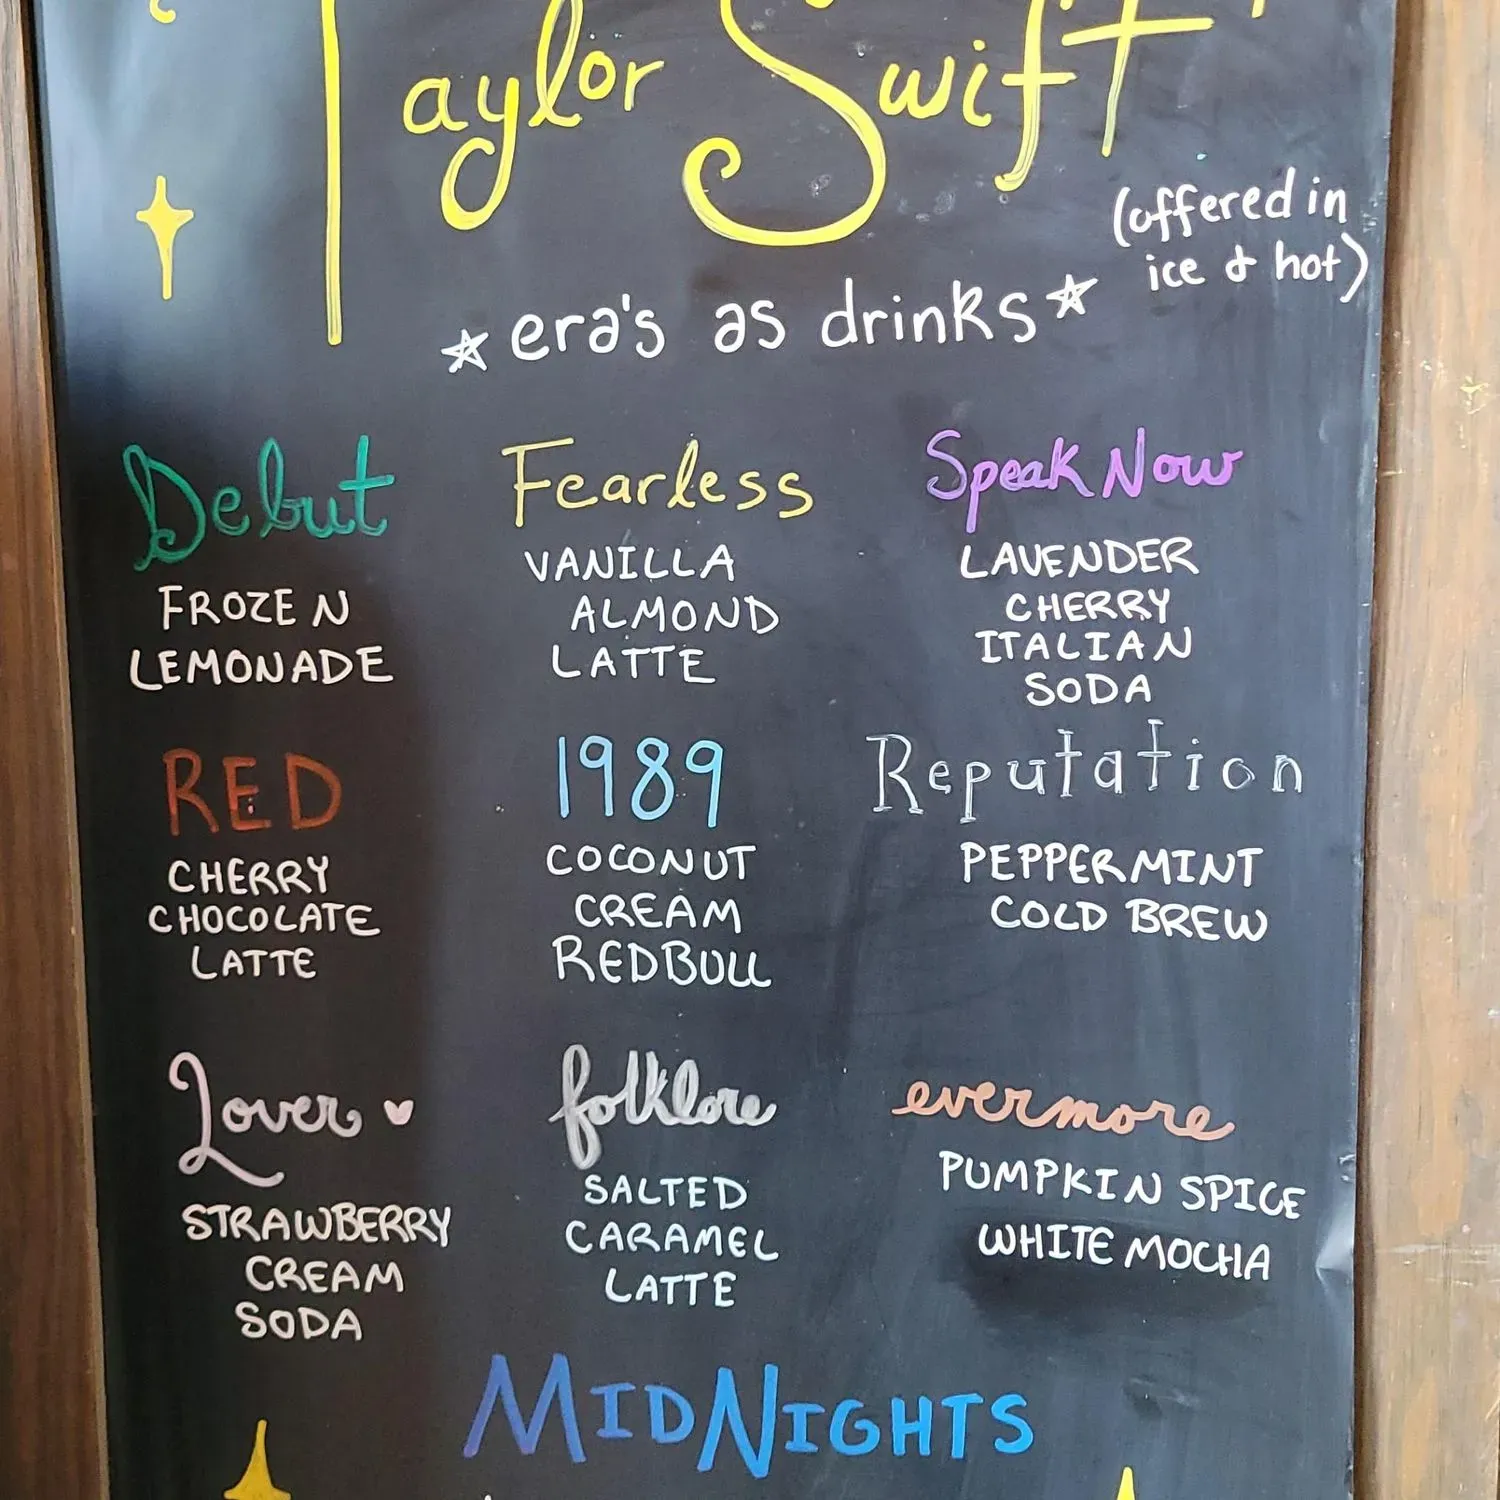 Taylor Swift
(offered in
ice & hot)
☆ era's as drinks ☆
Debut
FROZEN
LEMONADE
Fearless
VANILLA
ALMOND
LATTE
Speak Now
LAVENDER
CHERRY
ITALIAN
SODA
RED
CHERRY
CHOCOLATE
LATTE
1989
COCONUT
CREAM
REDBULL
Reputation
PEPPERMINT
COLD BREW
Lover ♥
STRAWBERRY
CREAM
SODA
folklore
SALTED
CARAMEL
LATTE
evermore
PUMPKIN SPICE
WHITE MOCHA
MIDNIGHTS